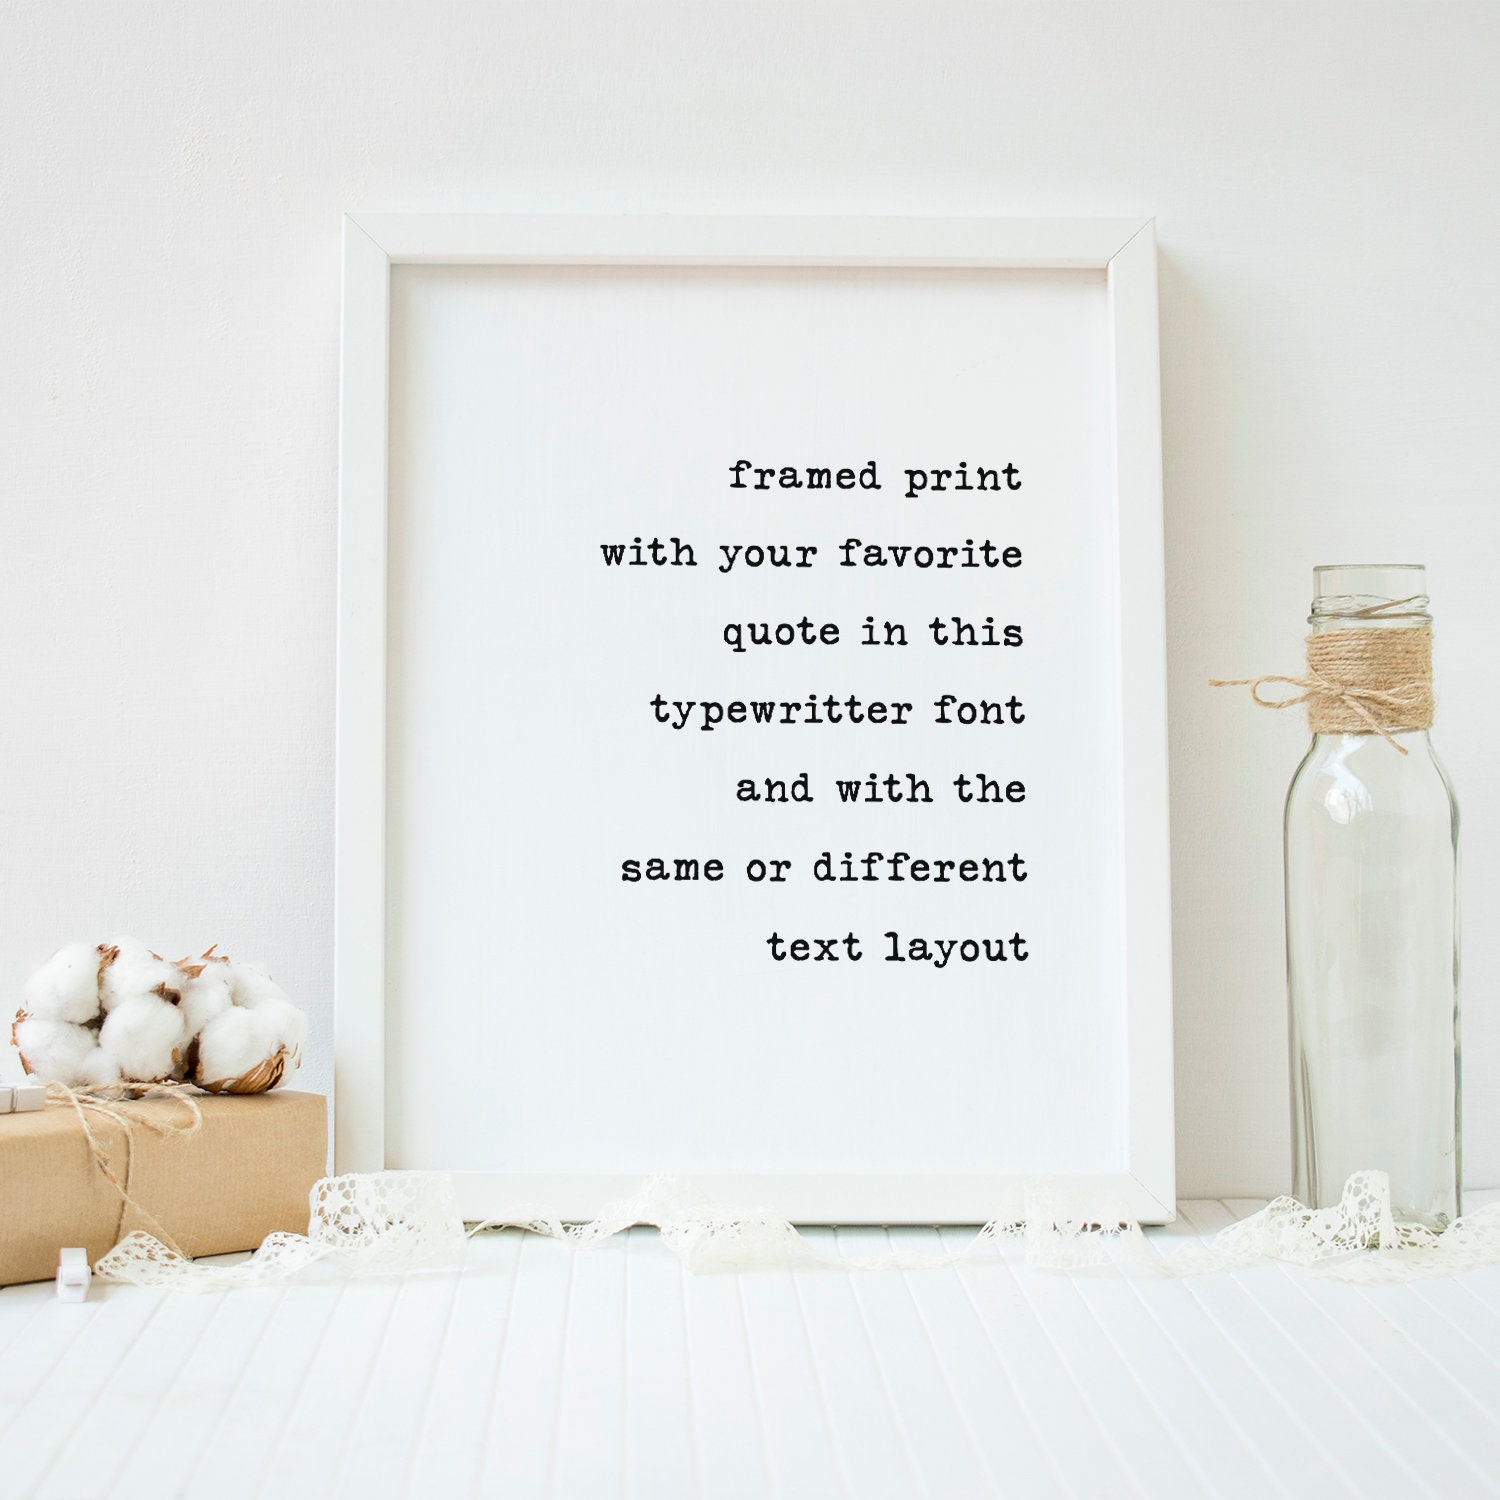 framed print
with your favorite
quote in this
typewritter font
and with the
same or different
text layout